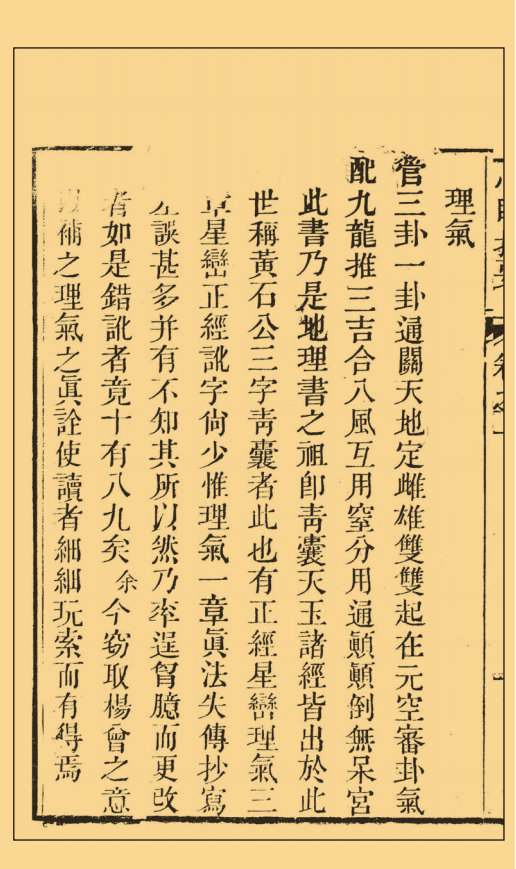 理氣
管三卦一卦通關天地定雌雄雙雙起在元空審卦氣
配九龍推三吉合八風互用窒分用通顛顛倒無呆宮
此書乃是地理書之祖卽靑囊天玉諸經皆出於此
世稱黃石公三字靑囊者此也有正經星巒理氣三
章星巒正經訛字尙少惟理氣一章眞法失傳抄寫
誤甚多并有不知其所以然乃率逞胷臆而更改
者如是錯訛者竟十有八九矣余今窃取楊曾之意
補之理氣之眞詮使讀者細細玩索而有得焉